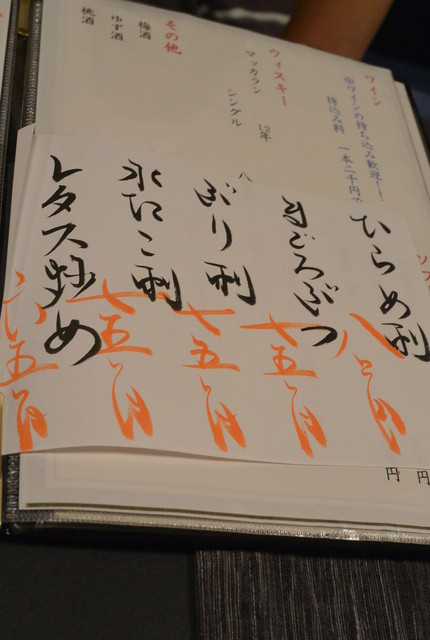 ワイン
※ワインの持ち込み歓迎！！
持込み料 一本二千円
ウィスキー
マッカラン 12年
シングル
八
その他
梅酒
ゆず酒
桃酒
ひらめ刺
八〇円
まぐろぶつ
七五〇円
ぶり刺
七五〇円
水たこ刺
七五〇円
レタス炒め
五〇円
円
円